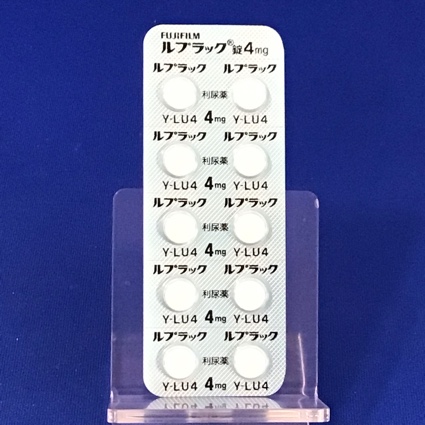 FUJIFILM
ルプラック®錠4mg
ルプラック ルプラック
利尿薬
Y-LU4 4mg Y-LU4
ルプラック ルプラック
利尿薬
Y-LU4 4mg Y-LU4
ルプラック ルプラック
利尿薬
Y-LU4 4mg Y-LU4
ルプラック ルプラック
利尿薬
Y-LU4 4mg Y-LU4
ルプラック ルプラック
利尿薬
Y-LU4 4mg Y-LU4